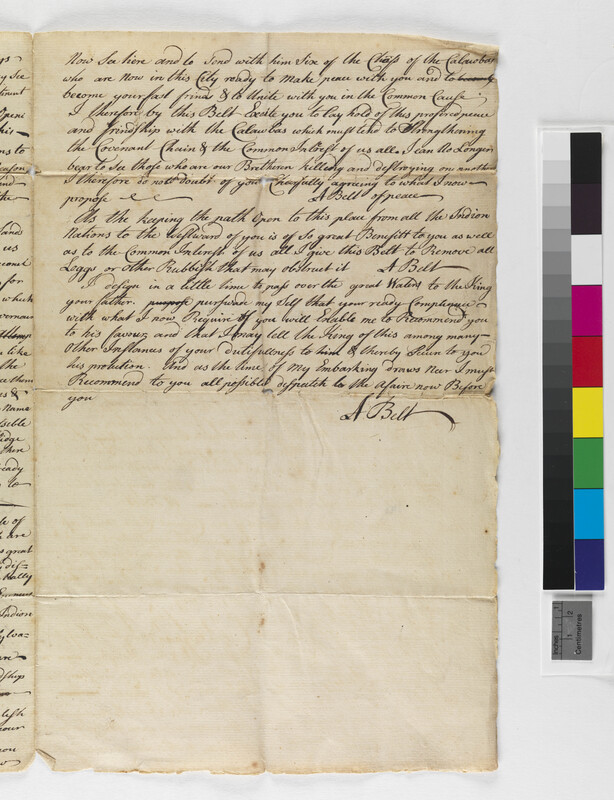 Now See here and to Send with him Six of the Chiefs of the Catawbas
who are Now in this City ready to Make peace with you and to
become your fast frind & to Unite with you in the Common Cause
I therefore by this Belt Excite you to lay hold of this profored peace
and frindship with the Catawbas which must tend to Strengthening
the Covenant Chain & the Common Intrest of us all. I can No Longer
bear to See those who are our Bretheren killing and destroying on another
I therefore do not doubt of your Chearfully agreeing to what I now
propose A Belt of peace
As the keeping the path Open to this place from all the Indian
Nations to the Westward of you is of so great Benefitt to you as well
as to the Common Interest of us all I give this Belt to Remove all
Loggs or Other Rubbish that may obstruct it A Belt
I design in a little time to pass over the great Water to the King
your father. purpose purswade my Self that your ready Complience
with what I now Require of you will Enable me to Recommend you
to his favour, and that I may tell the King of this among many
Other Instances of your dutifullness to him & thereby Secure to you
his protection. And as the time of My Embarking draws Near I must
Recommend to you all possible dispatch to the Afaire now Before
you
A Belt
ready
to
of
are
great
Indian
are
our
you
Inches
1
2
Centimetres